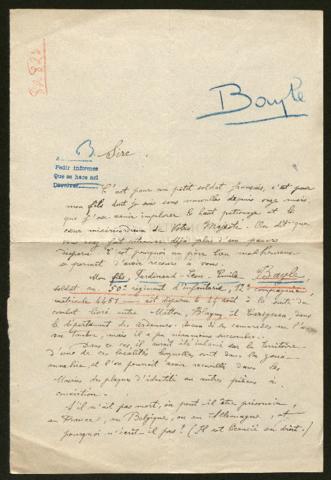 Bayle
B
Sire,
Pedir informes
Que se hace así
Devolver
C'est pour un petit soldat français, c'est pour
mon fils dont je suis sans nouvelles depuis onze mois,
que je viens implorer le haut patronage et le
cœur miséricordieux de Votre Majesté. On dit que
vous avez fait retrouver déjà plus d'un pauvre
disparu. C'est pourquoi un père bien malheureux
se permet d'avoir recours à vous.
Mon fils, Ferdinand-Léon-Émile Bayle
soldat au 50e régiment d'infanterie, 12e compagnie,
matricule 4451 est disparu le août à la suite du
combat livré entre Blagny et Carignan, dans
le département des Ardennes. Aucun de ses camarades ne l'a
vu tomber mais il a pu néanmoins succomber.
Dans ce cas, il aurait été inhumé sur le territoire
d'une de ces localités lesquelles sont dans la zone
envahie et l'on pourrait avoir recueilli dans les
Mairies sa plaque d'identité ou autres pièces à
conviction.
S'il n'est pas mort, ou peut-il être prisonnier,
en France, en Belgique, ou en Allemagne, et
pourquoi n'écrit-il pas? (Il est licencié en droit.)